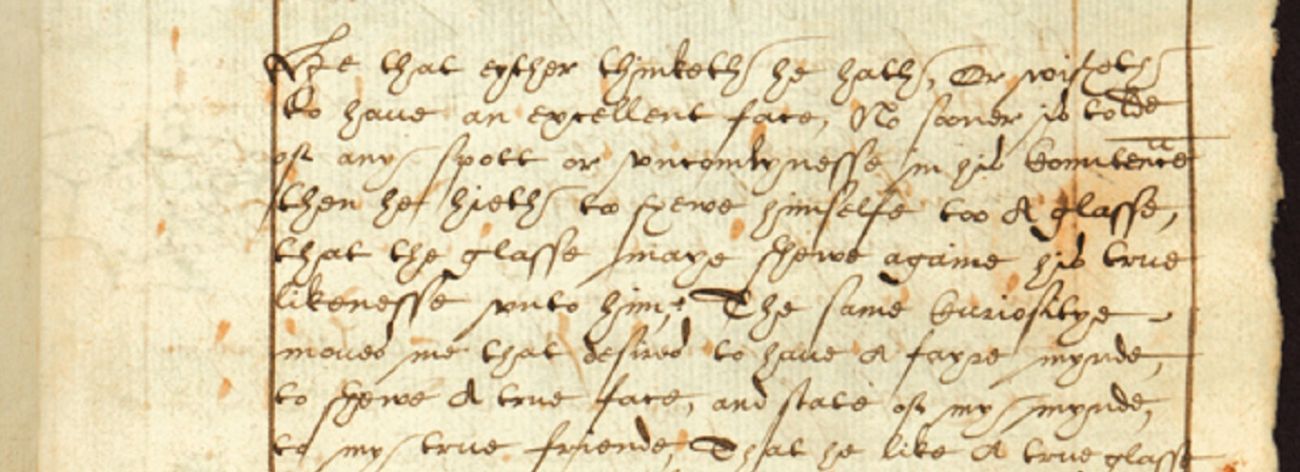 He that eyther thinketh he hath, Or wisheth
to haue an excellent face, No sooner is tolde
of any spott or vncomlynesse in his Countenn̄ce
then he hieth too shewe himselfe too A glasse,
that the glasse maye shewe againe his true
likenesse vnto him, The same Curiositye
moued me that desired to haue A fayre mynde,
to shewe A true face, and state of my mynde,
to my true friende, That he like A true glasse